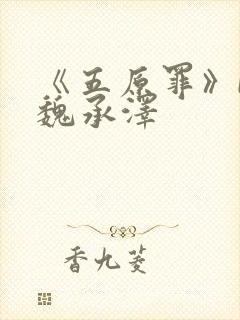 《五原罪》
魏承泽
香九菱